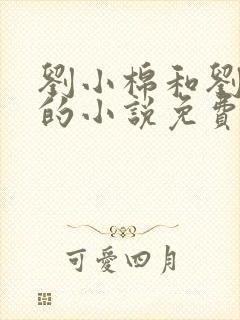 劉小棉和劉
的小說免費
可愛四月